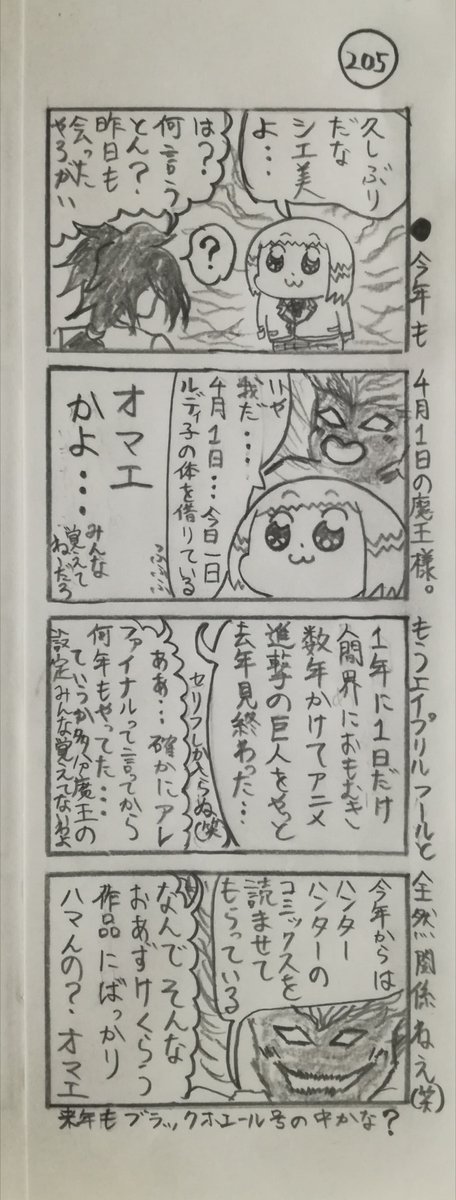 205
●今年も4月1日の魔王様。もうエイプリルフールと全然関係ねえ(笑)
久しぶり
だな
シエ美
よ・・・
は?
何言う
とん?
昨日も
会った
やろがい
?
いや
我だ・・・・
4月1日・・・今日一日
ルディ子の体を借りている
オマエ
かよ・・・
みんな
覚えて
ねーだろ
1年に1日だけ
人間界におもむき
数年かけてアニメ
進撃の巨人をやっと
去年見終わった・・・
セリフしか入らぬ(笑)
ああ・・・確かにアレ
ファイナルって言ってから
何年もやってた・・・
ていうか多分魔王の
設定みんな覚えてないわよ
今年からは
ハンター
ハンターの
コミックスを
読ませて
もらっている
なんでそんな
おあずけくらう
作品にばっかり
ハマんの?オマエ
来年もブラックホエール号の中かな?